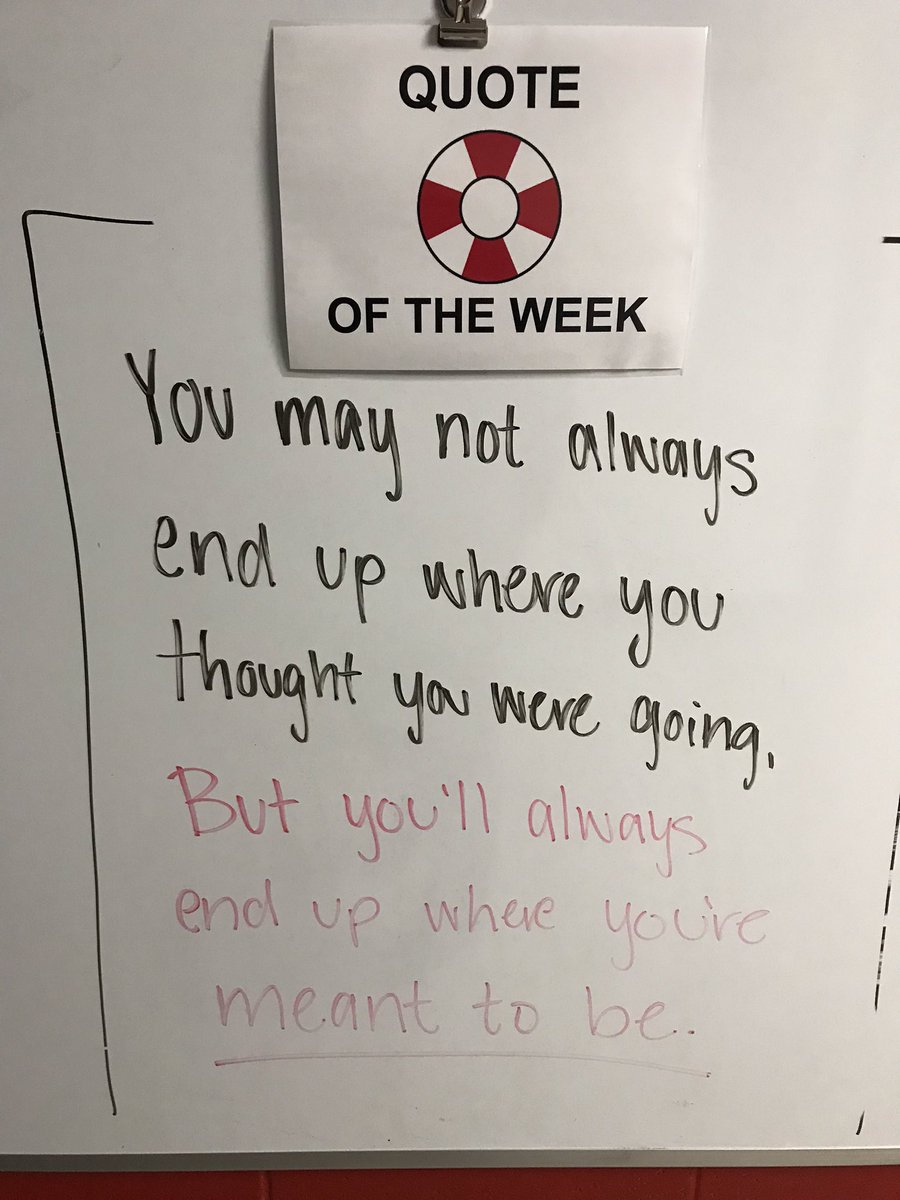 QUOTE
OF THE WEEK
You may not always
end up where you
thought you were going.
But you'll always
end up where you're
meant to be.